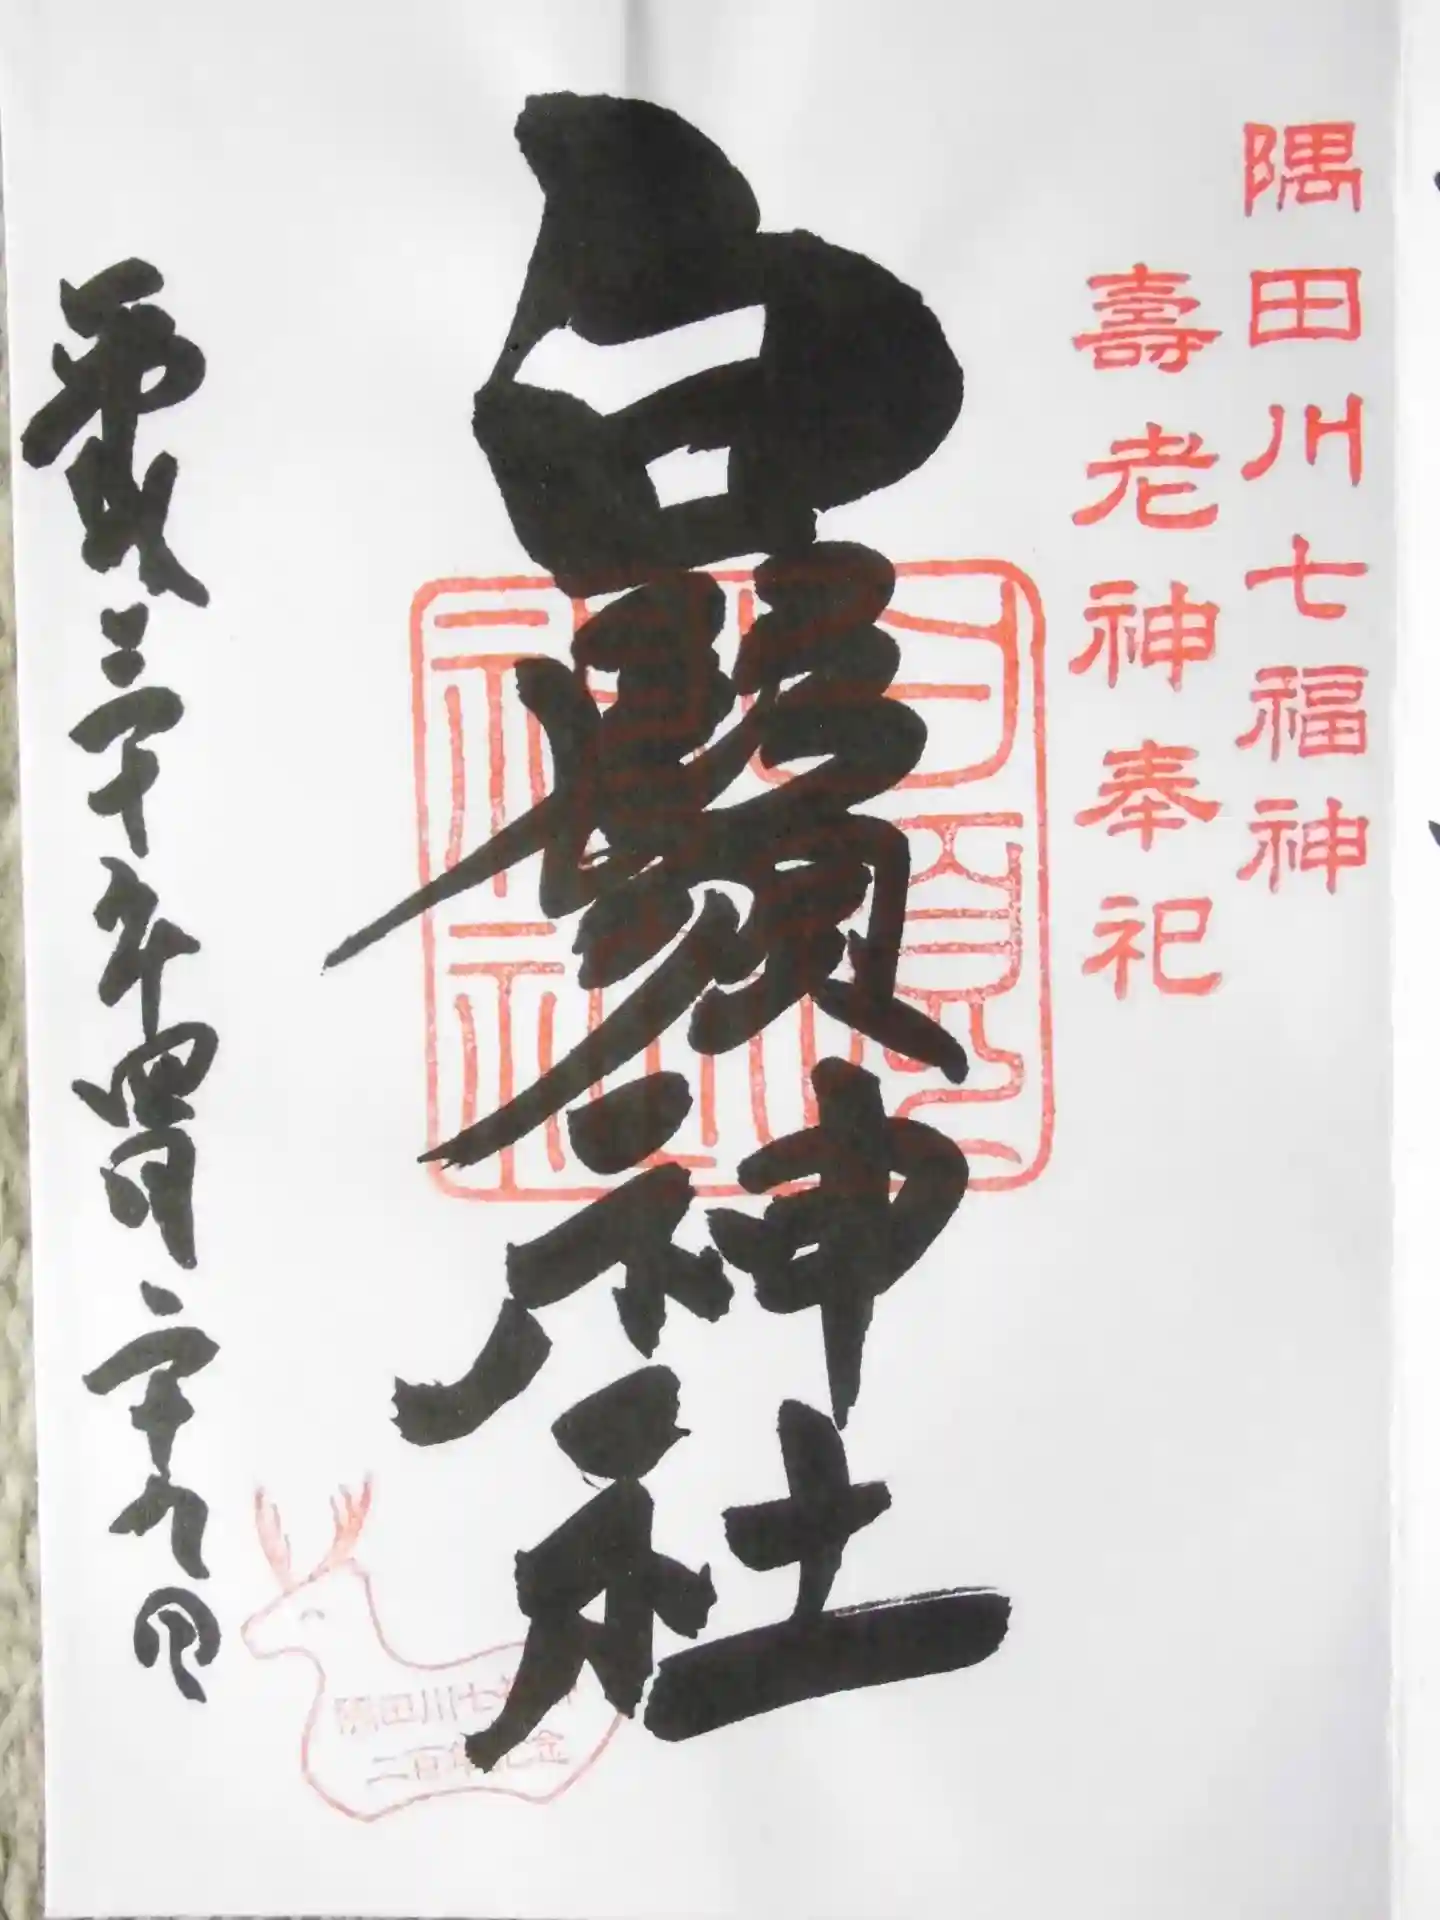 隅田川七福神
壽老神奉祀
白鬚神社
白鬚神社
平成三十年四月二十九日
隅田川七福神
二百年記念